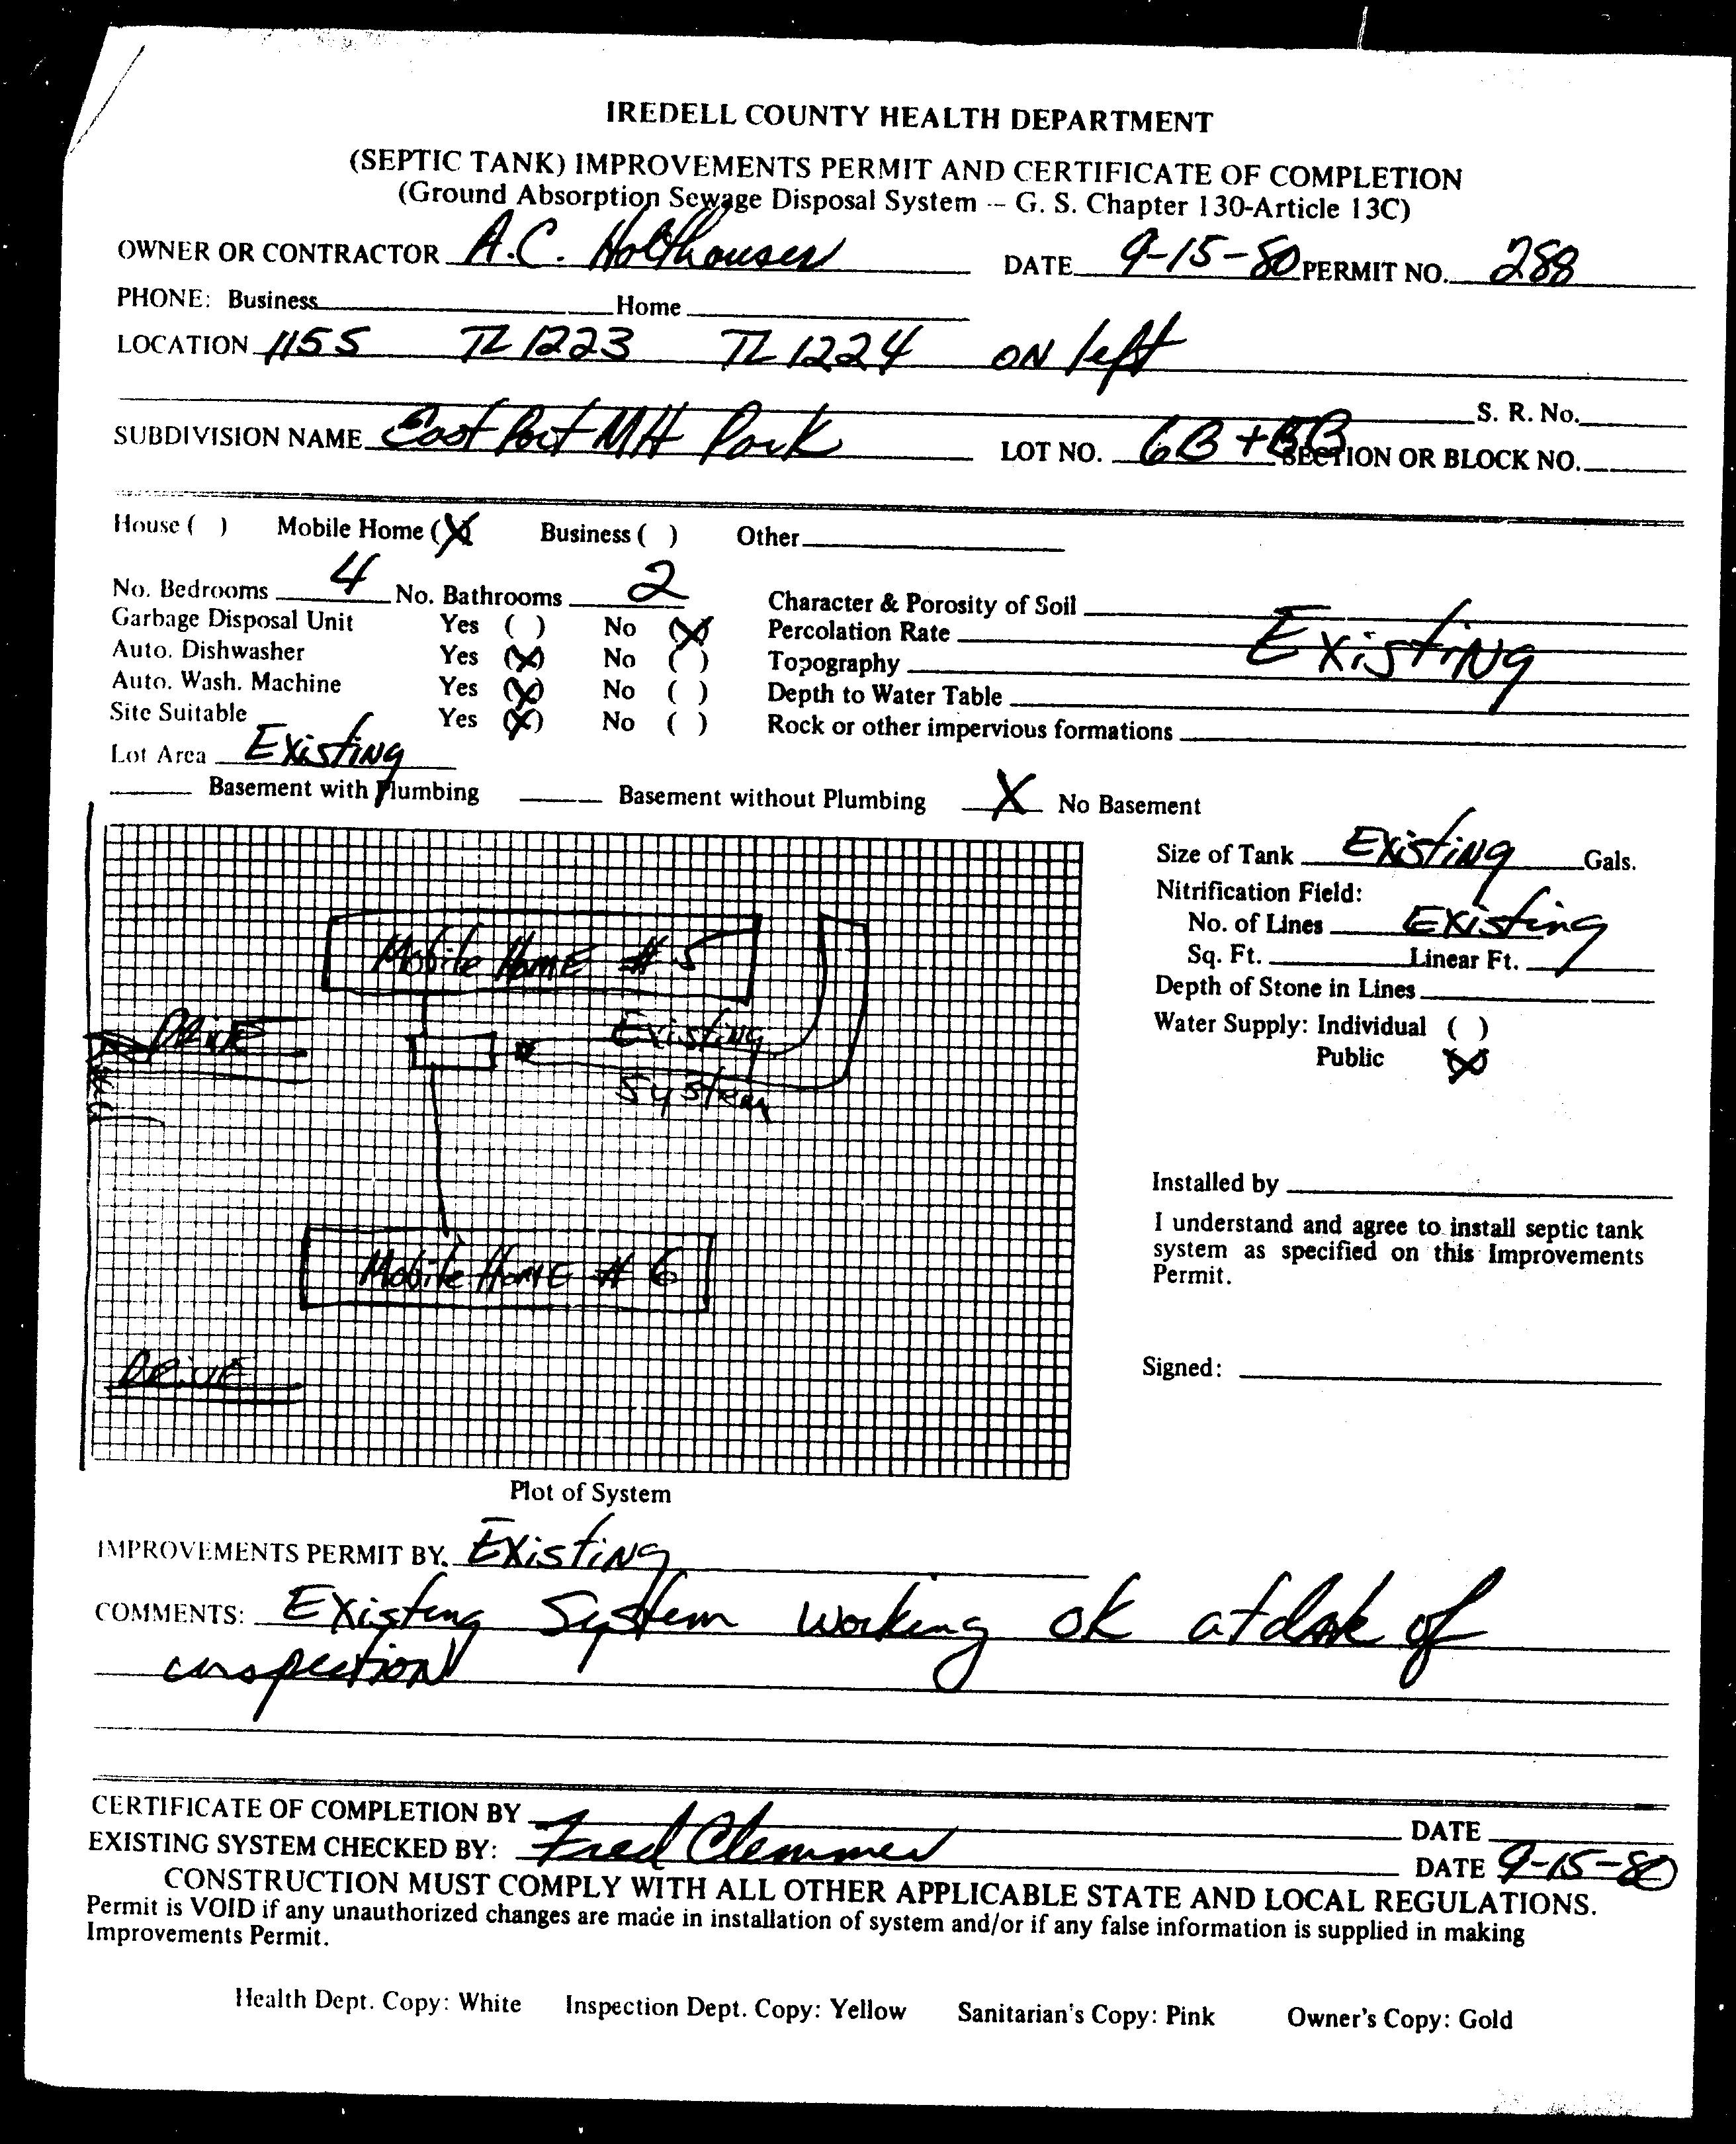 IREDELL COUNTY HEALTH DEPARTMENT
(SEPTIC TANK) IMPROVEMENTS PERMIT AND CERTIFICATE OF COMPLETION
(Ground Absorption Sewage Disposal System -- G. S. Chapter 130-Article 13C)
OWNER OR CONTRACTOR A.C. Holthouser DATE 9-15-80 PERMIT NO. 288
PHONE: Business Home
LOCATION 115 S TL 1223 TL 1224 ON left
S. R. No.
SUBDIVISION NAME East Port MH Park LOT NO. 6B + 5B SECTION OR BLOCK NO.
House ( ) Mobile Home (X) Business ( ) Other
No. Bedrooms 4 No. Bathrooms 2 Character & Porosity of Soil
Garbage Disposal Unit Yes ( ) No (X) Percolation Rate Existing
Auto. Dishwasher Yes (X) No ( ) Topography
Auto. Wash. Machine Yes (X) No ( ) Depth to Water Table
Site Suitable Yes (X) No ( ) Rock or other impervious formations
Lot Area Existing
Basement with Plumbing Basement without Plumbing X No Basement
Size of Tank Existing Gals.
Nitrification Field:
No. of Lines Existing
Sq. Ft. Linear Ft.
Depth of Stone in Lines
Water Supply: Individual ( )
Public (X)
Mobile Home # 5
DRIVE
Existing
System
Mobile Home # 6
DRIVE
Installed by
I understand and agree to install septic tank
system as specified on this Improvements
Permit.
Signed:
Plot of System
IMPROVEMENTS PERMIT BY. Existing
COMMENTS: Existing System working ok at date of
inspection
CERTIFICATE OF COMPLETION BY DATE
EXISTING SYSTEM CHECKED BY: Fred Clemmer DATE 9-15-80
CONSTRUCTION MUST COMPLY WITH ALL OTHER APPLICABLE STATE AND LOCAL REGULATIONS.
Permit is VOID if any unauthorized changes are made in installation of system and/or if any false information is supplied in making
Improvements Permit.
Health Dept. Copy: White Inspection Dept. Copy: Yellow Sanitarian's Copy: Pink Owner's Copy: Gold